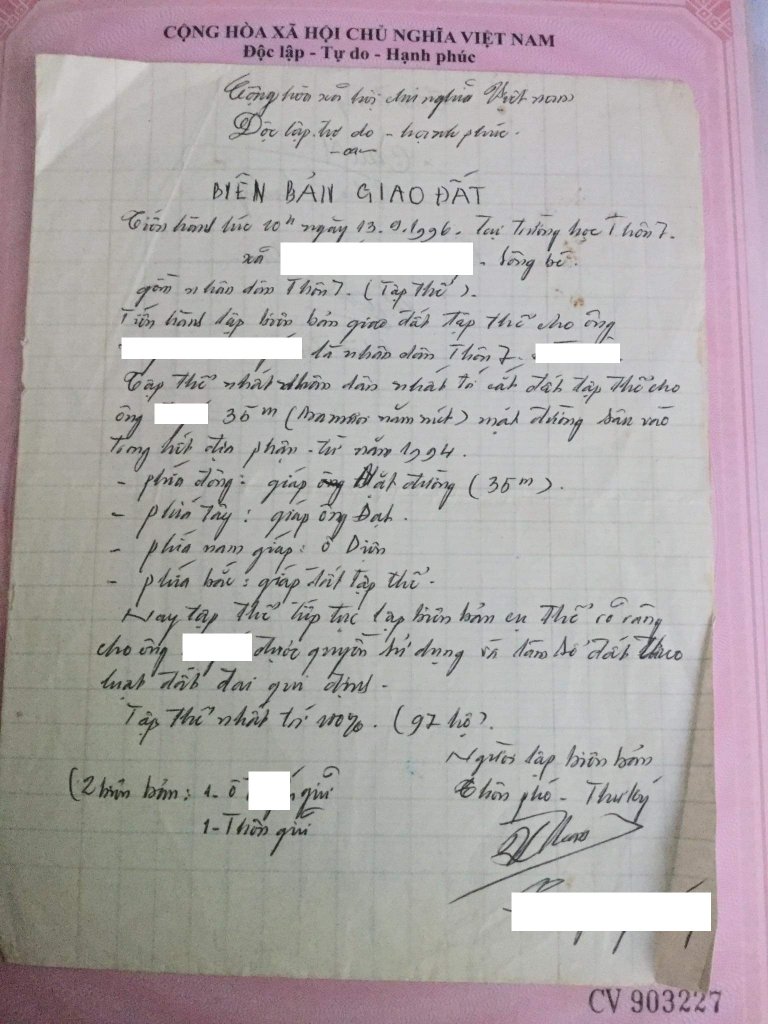 CỘNG HÒA XÃ HỘI CHỦ NGHĨA VIỆT NAM
Độc lập - Tự do - Hạnh phúc
Cộng hòa xã hội chủ nghĩa Việt nam
Độc lập. tự do - hạnh phúc.
BIÊN BẢN GIAO ĐẤT
Tiến hành lúc 10h ngày 13.9.1996. Tại trường học Thôn 7.
xã - Sông bé.
gồm nhân dân Thôn 7. (Tập thể).
Tiến hành lập biên bản giao đất tập thể cho ông
là nhân dân Thôn 7.
Tập thể nhất nhân dân nhất trí cắt đất tập thể cho
ông 35m (ba mươi năm mét) mặt đường sâu vào
trong hết địa phận - từ năm 1994.
- phía đông: giáp Mặt đường (35m).
- phía tây: giáp ông Đạt.
- phía nam giáp: ô Diên
- phía bắc: giáp đất tập thể.
Nay tập thể tiếp tục lập biên bản cụ thể rõ ràng
cho ông được quyền sử dụng và làm sổ đất theo
luật đất đai qui định.
Tập thể nhất trí 100%. (97 hộ).
Người lập biên bản
(2 biên bản: 1- ô giữ
Thôn phó - Thư ký
1- Thôn giữ
CV 903227